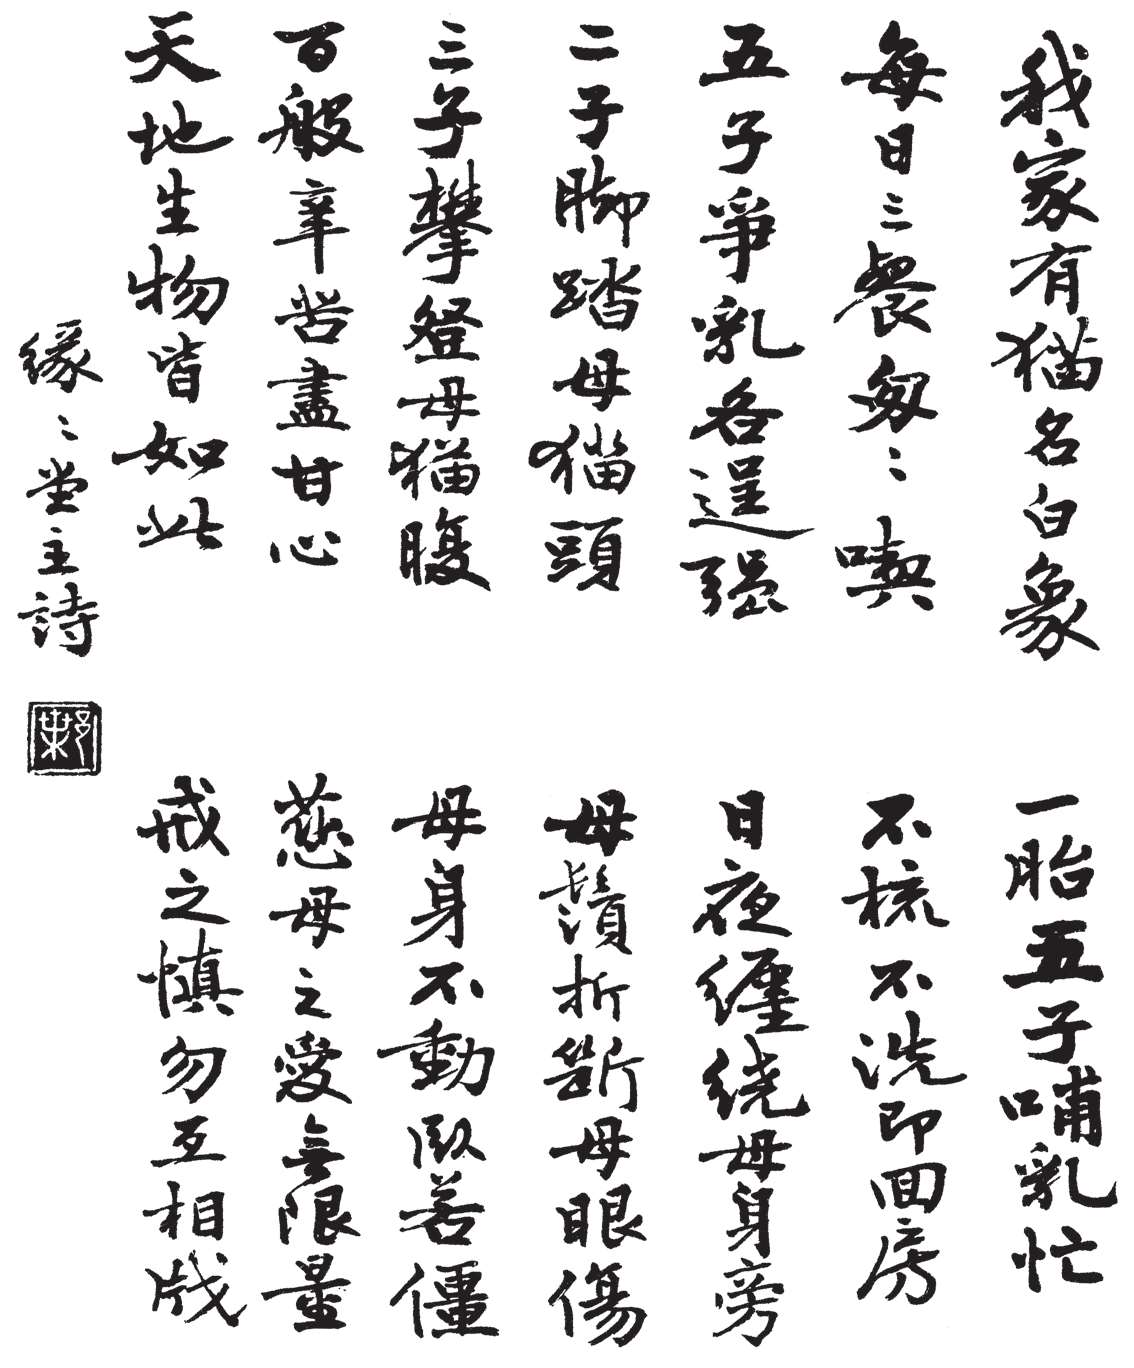 我家有猫名白象
一胎五子哺乳忙
每日三餐匆〻喫
不梳不洗即回房
五子爭乳各逞强
日夜纏绕母身旁
二子脚踏母猫頭
母鬚折斷母眼傷
三子攀登母猫腹
母身不動臥若僵
百般辛苦盡甘心
慈母之愛無限量
天地生物皆如此
戒之慎勿互相戕
緣〻堂主詩